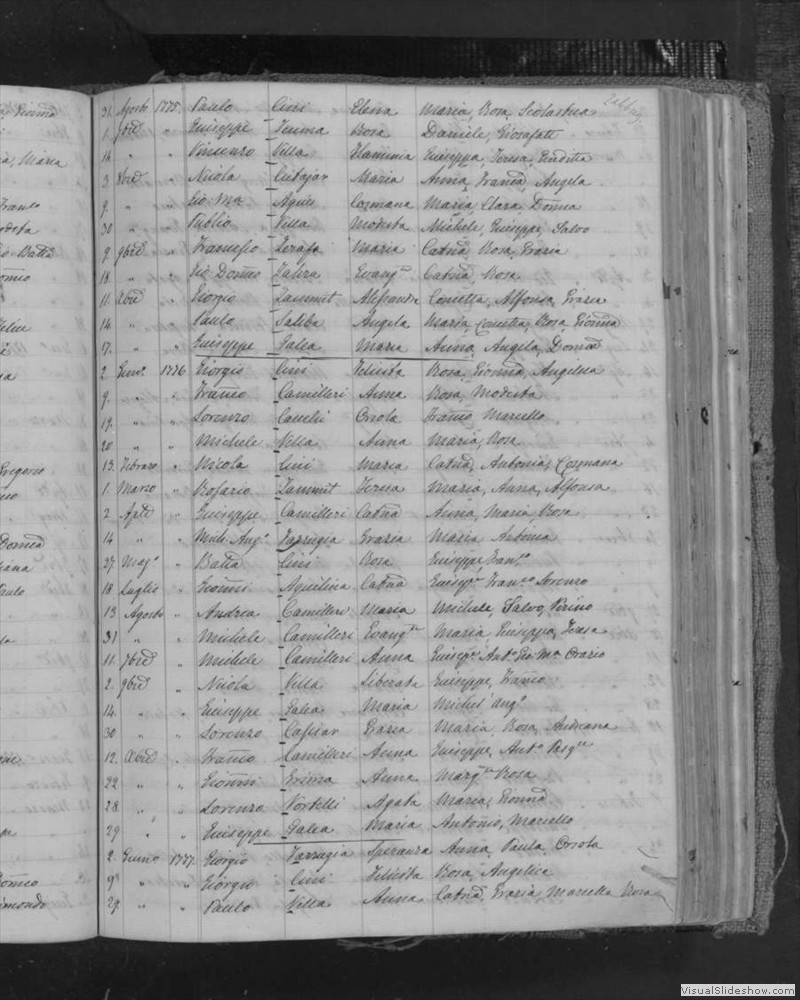 31. Agosto 1775. Paulo Cini Elena Maria, Rosa, Scolastica
1. 7bre " Giuseppe Rosa Daniele, Giosafatt
14 " " Vincenzo Villa Flaminia Giuseppa, Teresa, Eudotia
3. 8bre " Nicola Cutajar Maria Anna, Franca, Angela
9. " " Gio: Ma Agius Cosmana Maria, Clara, Donna
30 " " Publio Villa Modesta Michele, Giuseppe, Salvo
9. 9bre " Francesco Zerafa Maria Catna, Rosa, Grazia
18. " " Gio Domco Zabra Evangta Catna, Rosa
11. Xbre " Giorgio Zammit Alesandra Concetta, Alfonsa, Grazia
14. " " Paulo Saliba Angela Maria, Concetta, Rosa, Gionna
17. " " Giuseppe Galea Maria Anna, Angela, Domca
2. Genro 1776 Giorgio Cini Felicita Rosa, Gionna, Angelica
9. " " Franco Camilleri Anna Rosa, Modesta
19. " " Lorenzo Cauchi Orsola Franco, Marcello
20 " " Michele Villa Anna Maria, Rosa
13. Febraro " Nicola Cini Maria Catna, Antonia, Cosmana
1. Marzo " Rosario Zammit Teresa Maria, Anna, Alfonsa
2. Aple " Giuseppe Camilleri Catna Anna, Maria, Rosa
14 " " Mich: Ango Farrugia Grazia Maria Antonia
27. Mago " Batta Cini Rosa Giuseppe, Franco
18. Luglio " Gionni Aquilina Catna Giusepe Franco Lorenzo
13. Agosto " Andrea Camilleri Maria Michele, Salvo,
31 " " Michele Camilleri Evangta Maria, Giuseppa, Teresa
11. 7bre " Michele Camilleri Anna Giusepe Anto Gio: Ma Orazio
2. 9bre " Nicola Villa Liberata Giuseppe, Franco
14. " " Giuseppe Galea Maria Michel' Ango
30 " " Lorenzo Cassar Grazia Maria, Rosa, Andreana
12. Xbre " Franco Camilleri Anna Giuseppe, Anto Pasqle
22 " " Gionni Grima Anna Margta Rosa
28. " " Lorenzo Portelli Agata Maria, Gionna
29 " " Giuseppe Galea Maria Antonio, Marcello
2. Genno 1777. Giorgio Farrugia Speranza Anna, Paula, Orsola
9. " " Giorgio Cini Felicita Rosa, Angelica
29. " " Paulo Villa Anna Catna, Grazia, Marcella, Rosa
VisualSlideshow.com